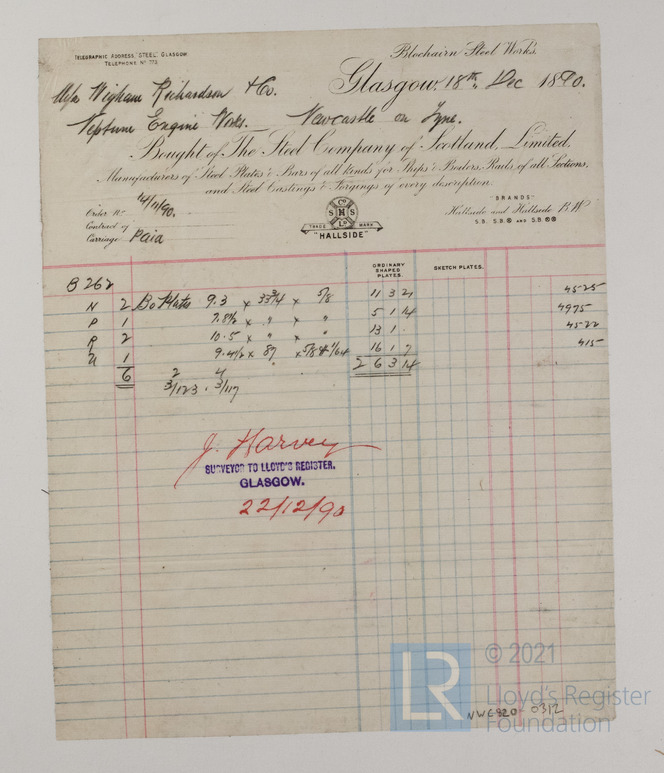 TELEGRAPHIC ADDRESS, "STEEL" GLASGOW.
TELEPHONE Nº 773
Blochairn Steel Works.
Glasgow, 18th Dec 1890.
Wigham Richardson & Co.
Neptune Engine Works. Newcastle on Tyne.
Bought of The Steel Company of Scotland, Limited,
Manufacturers of Steel Plates & Bars of all kinds for Ships & Boilers, Rails of all Sections,
and Steel Castings & Forgings of every description.
Order No 14/11/90.
Contract of
Carriage Paid
Cº
S H S
Lº
TRADE MARK
"HALLSIDE"
"BRANDS"
Hallside and Hallside B.W
S.B. S.B.® AND S.B.®®
ORDINARY SHAPED PLATES.
SKETCH PLATES.
B 262
N 2 Bo Plates 9.3 × 33¾ × 5/8 11 3 21 4525
P 1 7.8½ × " × " 5 1 14 4975
R 2 10.5 × " × " 13 1 . 4522
U 1 9.4½ × 87 × 5/8 & 1/64 16 1 7 415
6 2 4 26 3 14
3/123 . 3/117
J. Harvey
SURVEYOR TO LLOYD'S REGISTER.
GLASGOW.
22/12/90
LR
© 2021
Lloyd's Register
Foundation
NWE820-0312